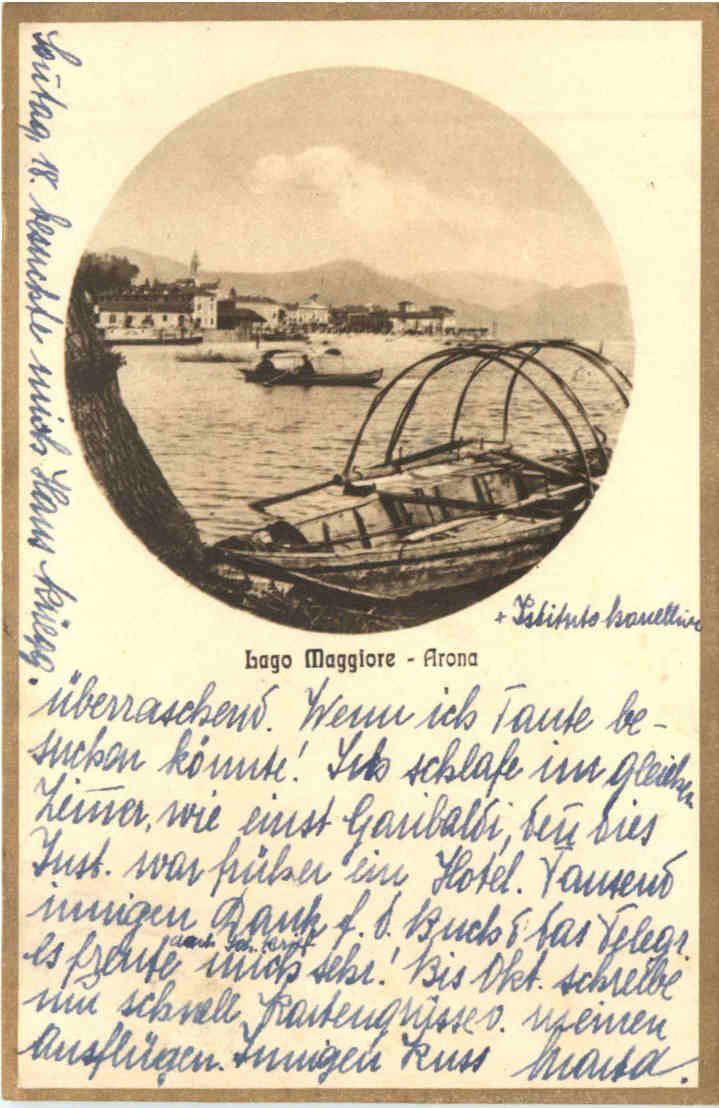 Sontag, 18. besuchte mich Hans
+ Istituto
Lago Maggiore - Arona
überraschend. Wenn ich Tante be-
suchen könnte! Ich schlafe im gleichen
Zim̄er, wie einst Garibaldi, den̄ dies
Inst. war früher ein Hotel. Tausend
innigen Dank f. d. Buch & das Telegr.
es freute mich sehr! Bis Okt. schreibe
nur schnell Kartengrüsse v. meinen
Ausflügen. Innigen Kuss